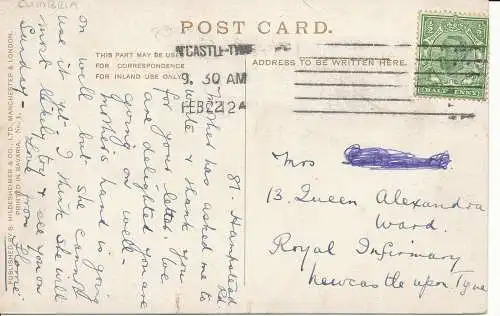 CUMBRIA
POST CARD.
THIS PART MAY BE USED
FOR CORRESPONDENCE
FOR INLAND USE ONLY.
ADDRESS TO BE WRITTEN HERE.
N'CASTLE-TYNE
9. 30 AM
FEB 22 12
HALF PENNY
81. Hampstead
Rd.
Mother has asked me to
write & thank you
for your letter. We
are delighted you are
going on well—
Mother's hand is going
on well but she cannot
use it yet. I think she will
most likely try & see you on
Sunday—
Love from
Florrie
Mrs
13. Queen Alexandra
Ward.
Royal Infirmary
Newcastle upon Tyne
PUBLISHED BY S. HILDESHEIMER & CO., LTD. MANCHESTER & LONDON.
PRINTED IN BAVARIA. No. 1.